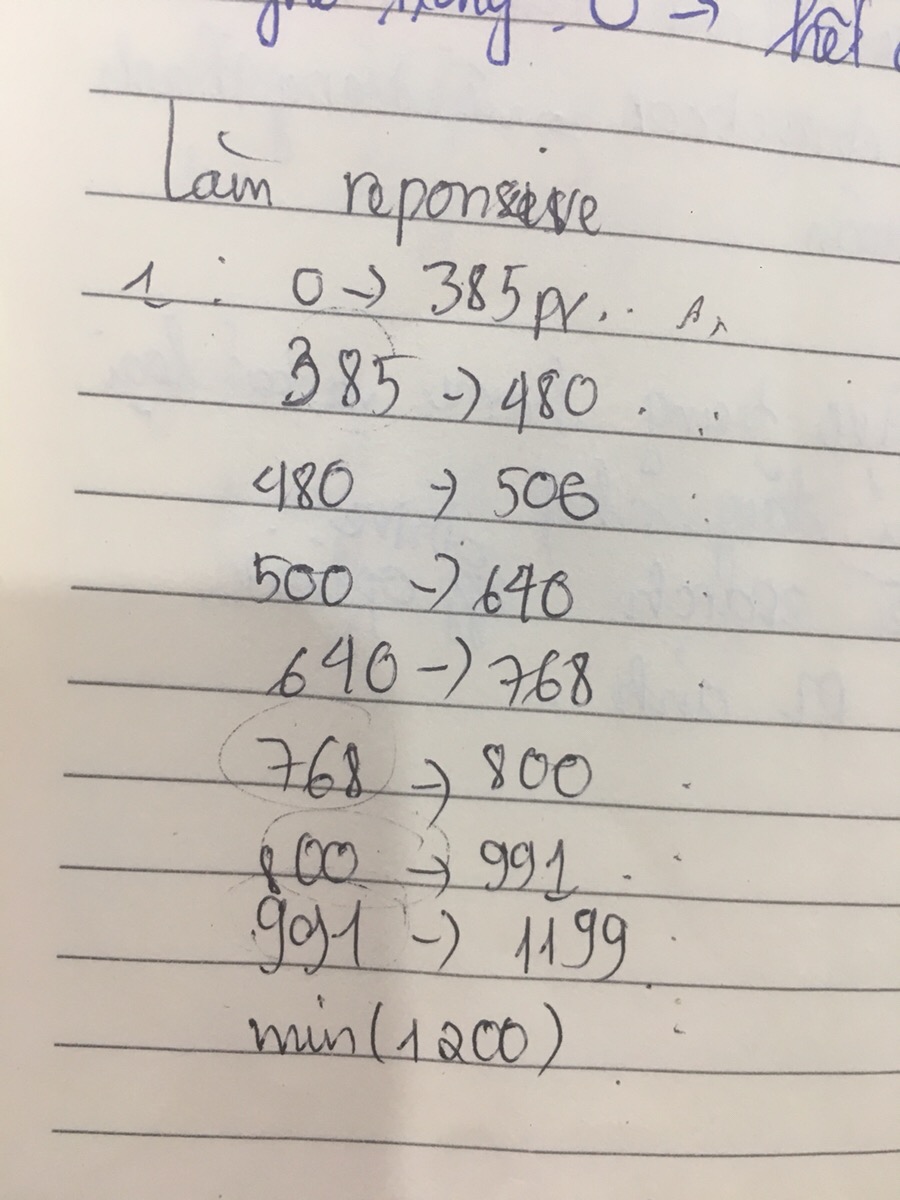 trong. 0 → hết
Làm reponsive
1 : 0 → 385 px
385 → 480
480 → 500
500 → 640
640 → 768
768 → 800
800 → 991
991 → 1199
min(1200)